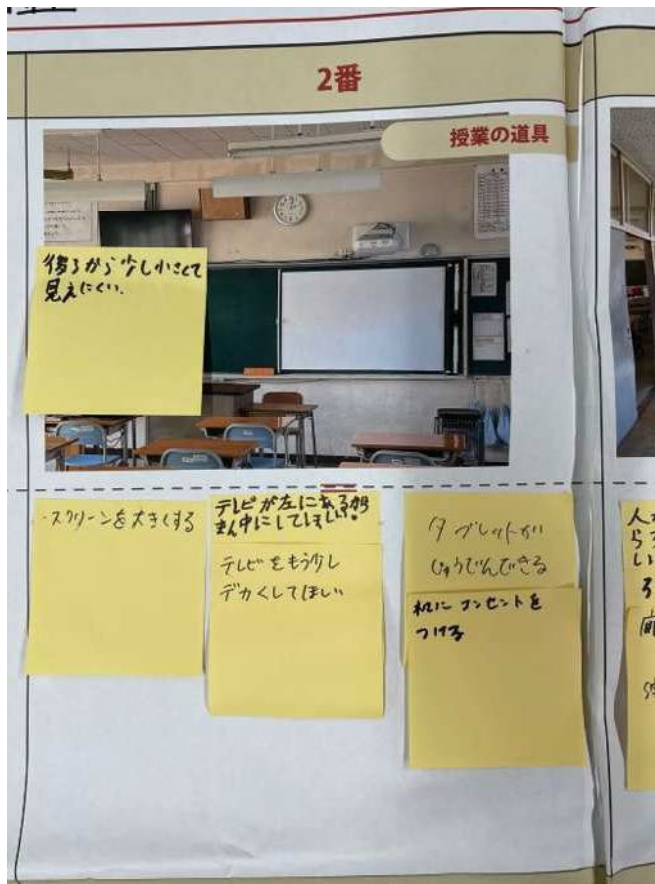 2番
授業の道具
後ろから少し小さくて
見えにくい.
・スクリーンを大きくする
テレビが左にあるから
まん中にしてほしい!
テレビをもう少し
デカくしてほしい
タブレットが
じゅうでんできる
机にコンセントを
つける